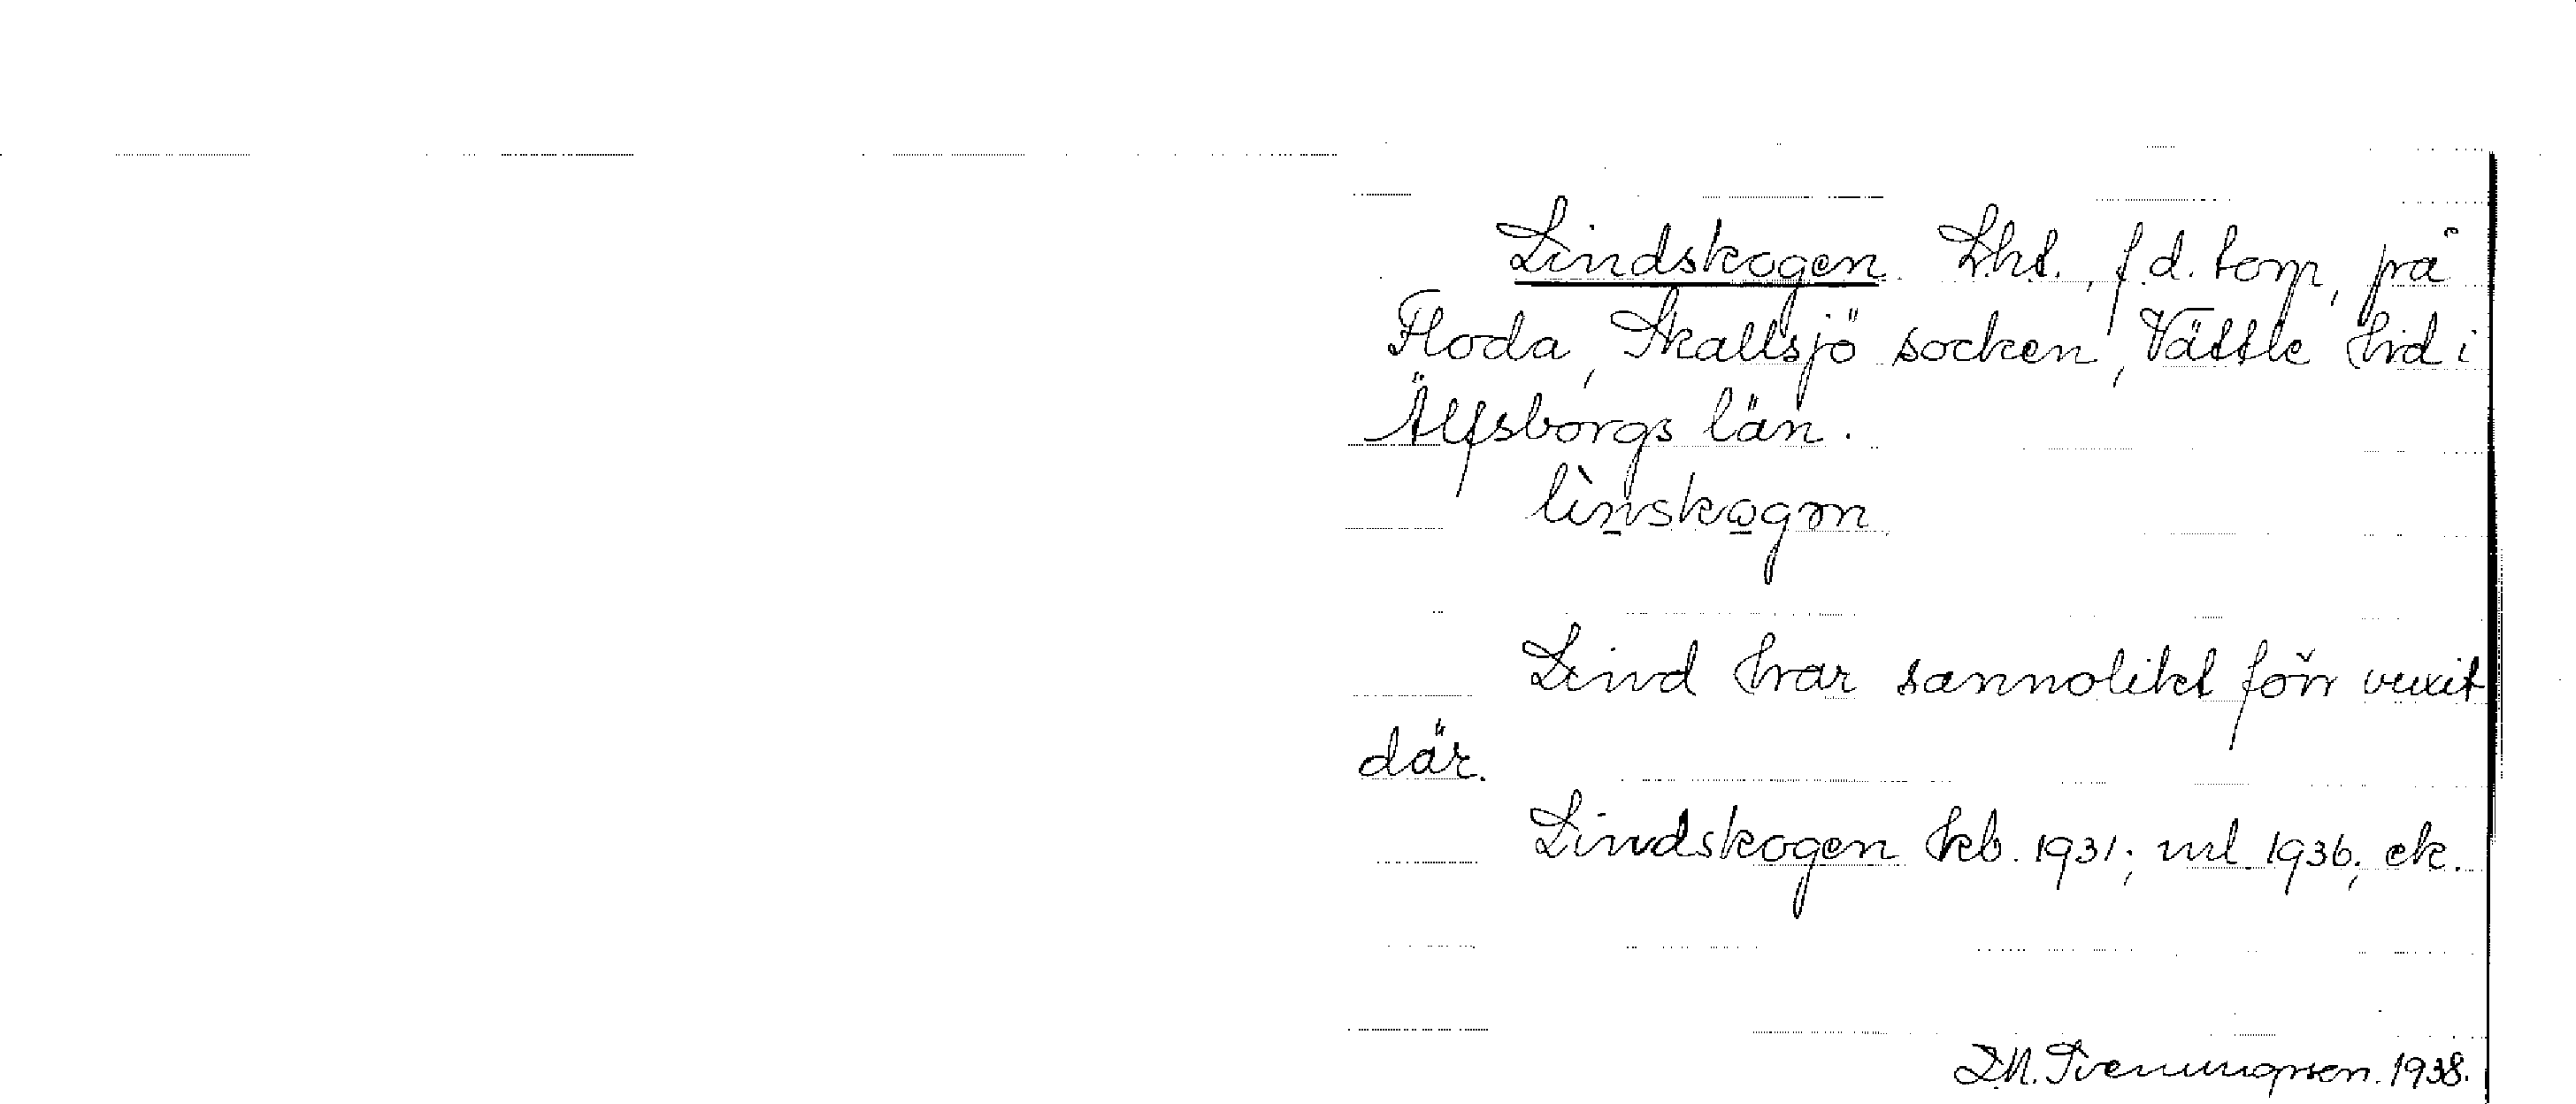 Lindskogen. Lht., f.d. torp, på
Floda, Skallsjö socken, Vättle hrd i
Älfsborgs län.
lìnskogən
Lind har sannolikt förr vuxit
där.
Lindskogen kb. 1931; ml 1936; ek.
1938.